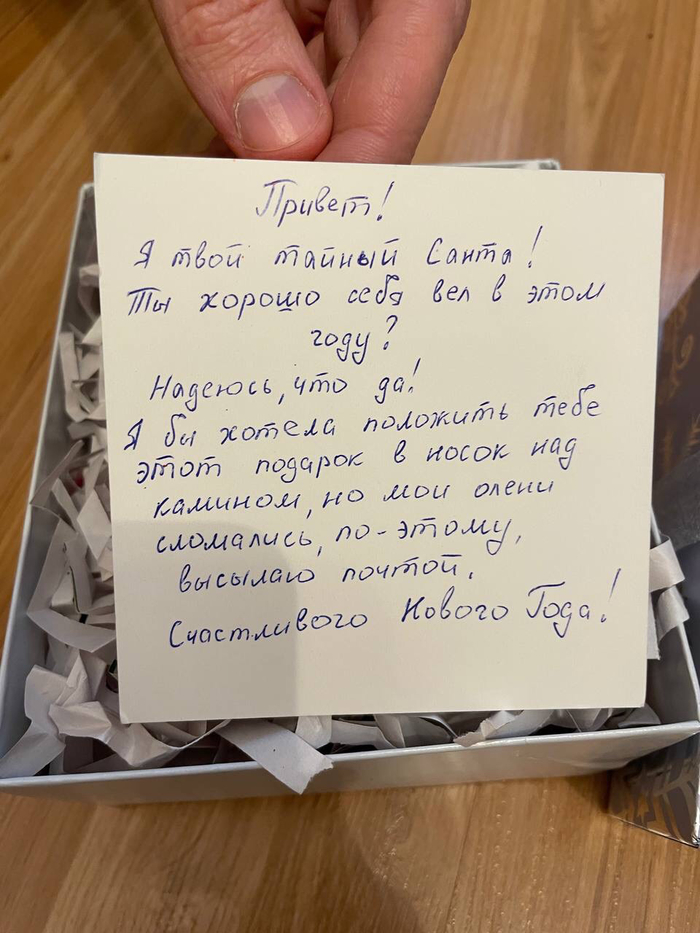 Привет!
Я твой тайный Санта!
Ты хорошо себя вел в этом
году?
Надеюсь, что да!
Я бы хотела положить тебе
этот подарок в носок над
камином, но мои олени
сломались, по-этому,
высылаю почтой.
Счастливого Нового Года!